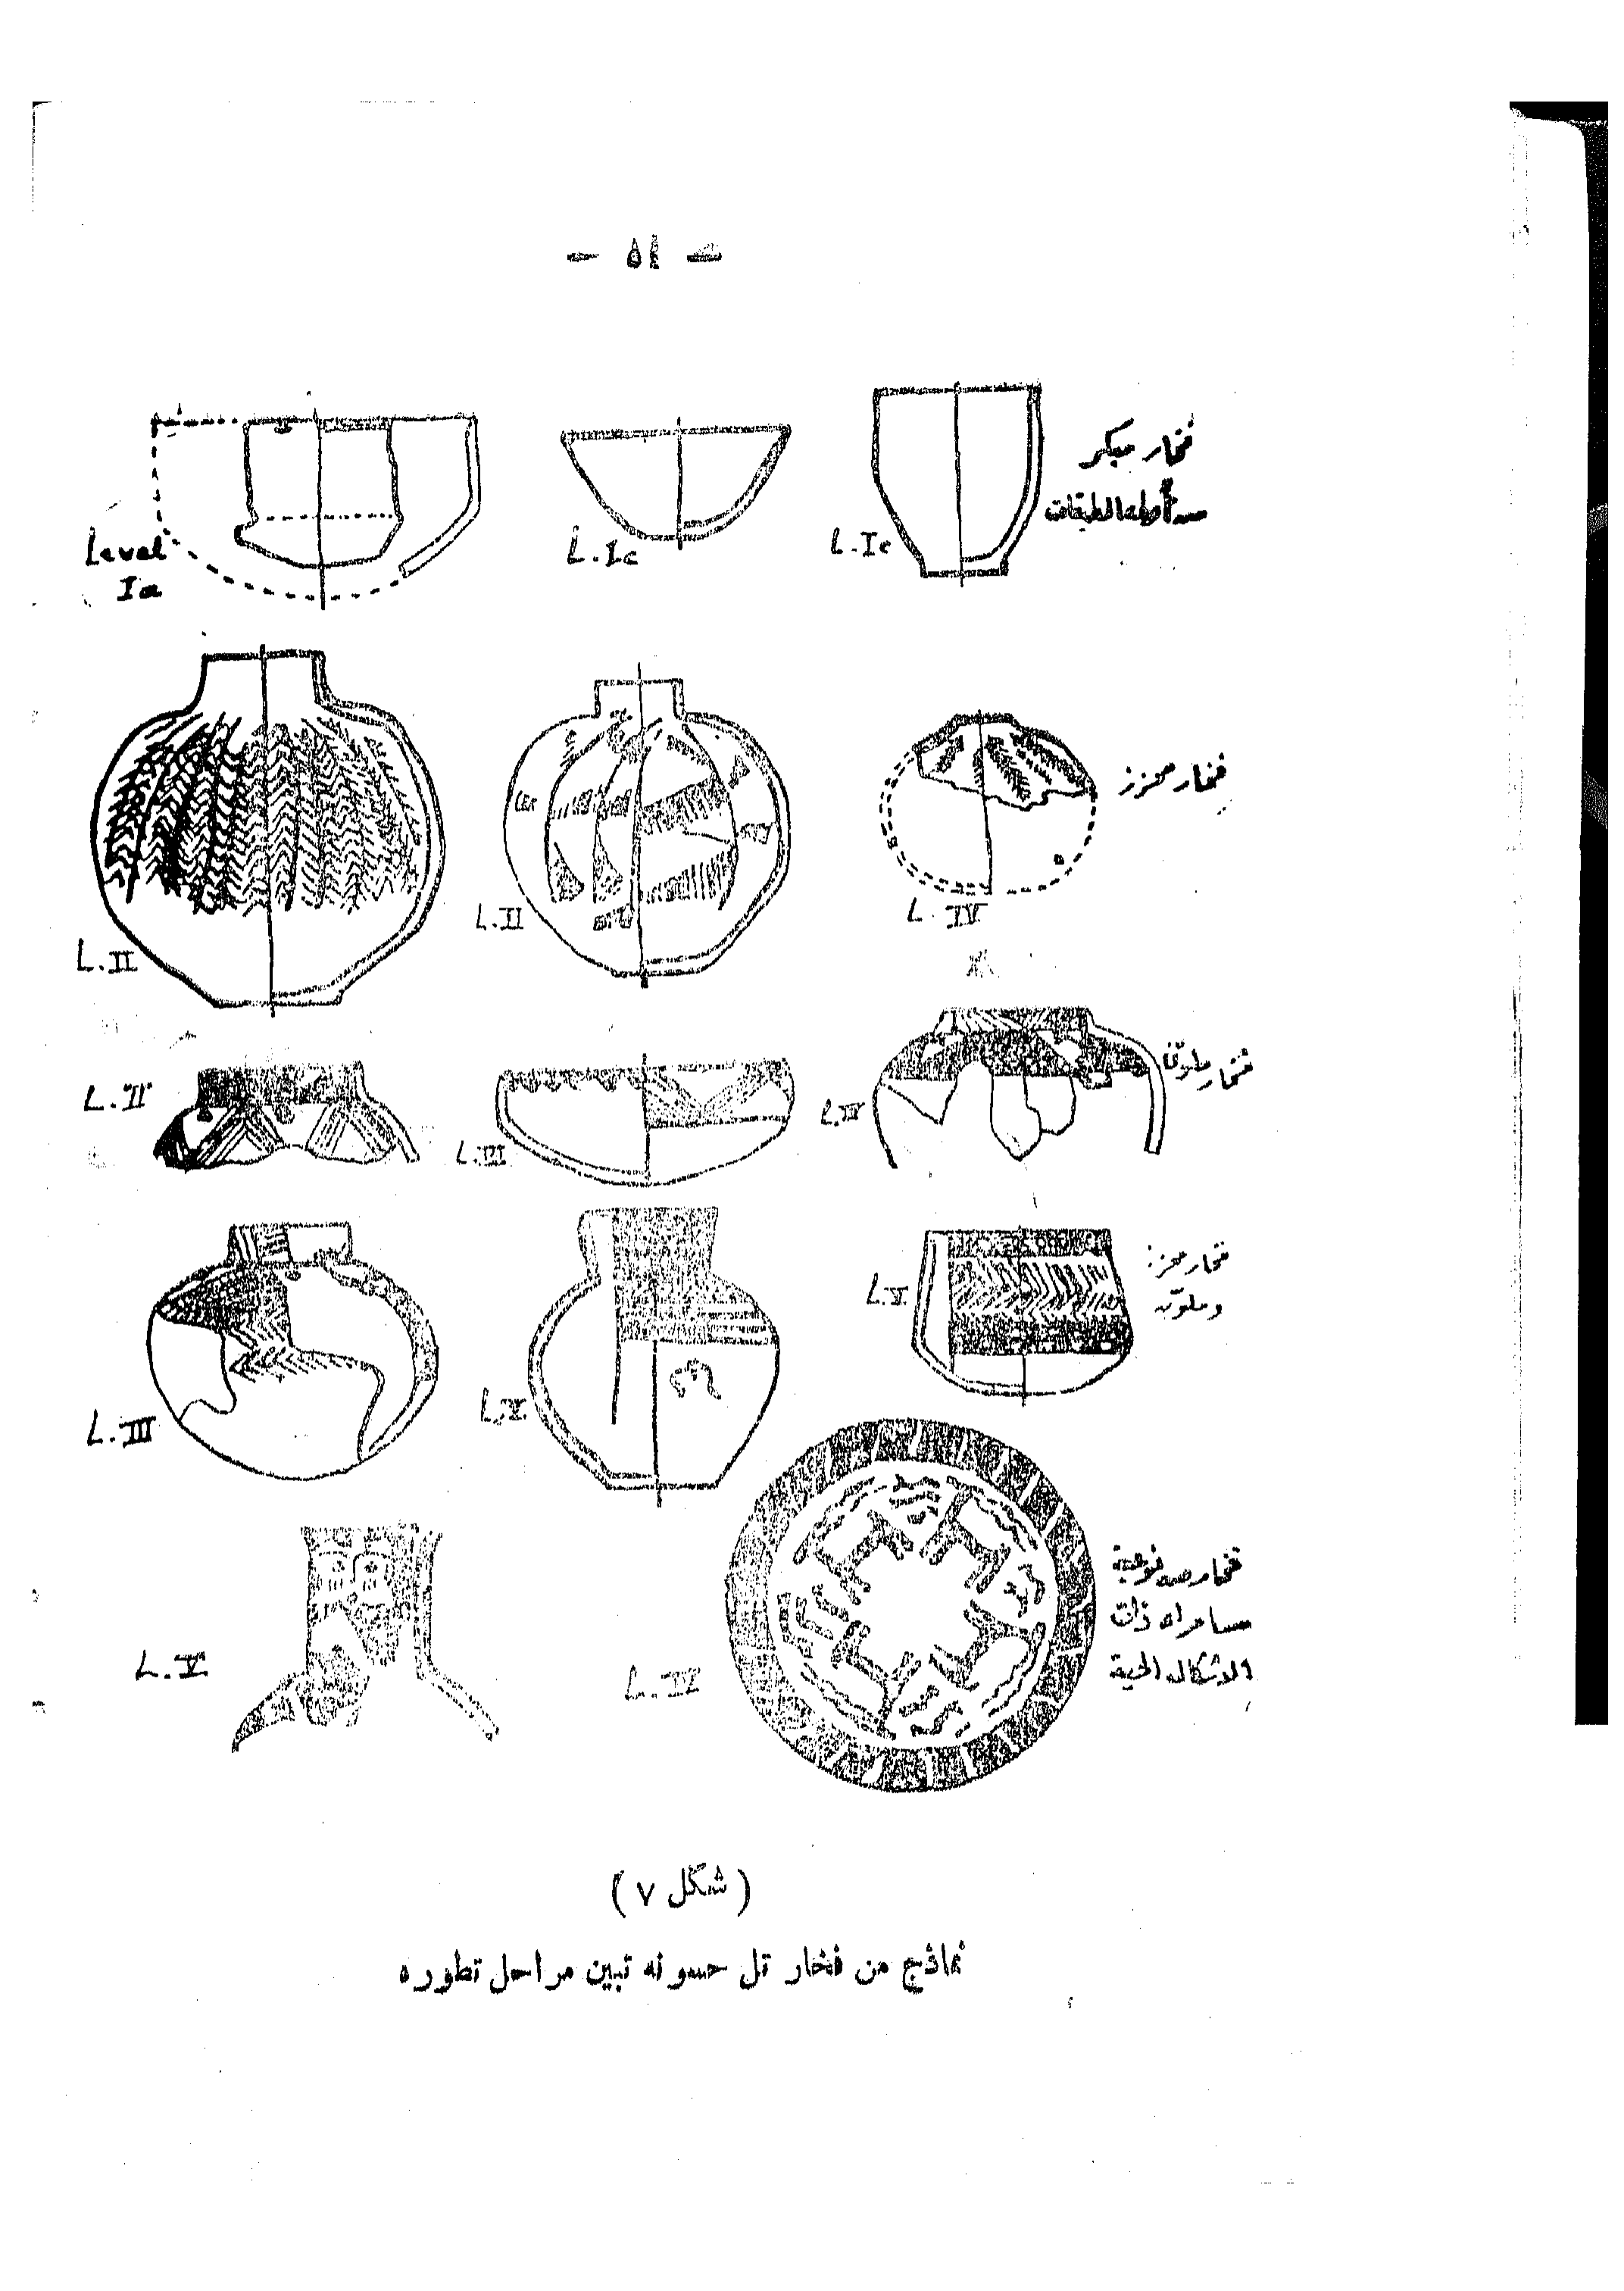 - ٥٤ -
فخار مبكر
من أوطأ الطبقات
Level
Ia
L.Ic
L.Ic
فخار محزز
L.II
L.II
L.IV
فخار ملوّن
L.II
L.III
L.III
فخار محزز
وملوّن
L.III
L.V
L.V
فخار من نوعية
سامراء ذات
الاشكال الحية
L.V
L.IV
(شكل ٧)
نماذج من فخار تل حسونه تبين مراحل تطوره